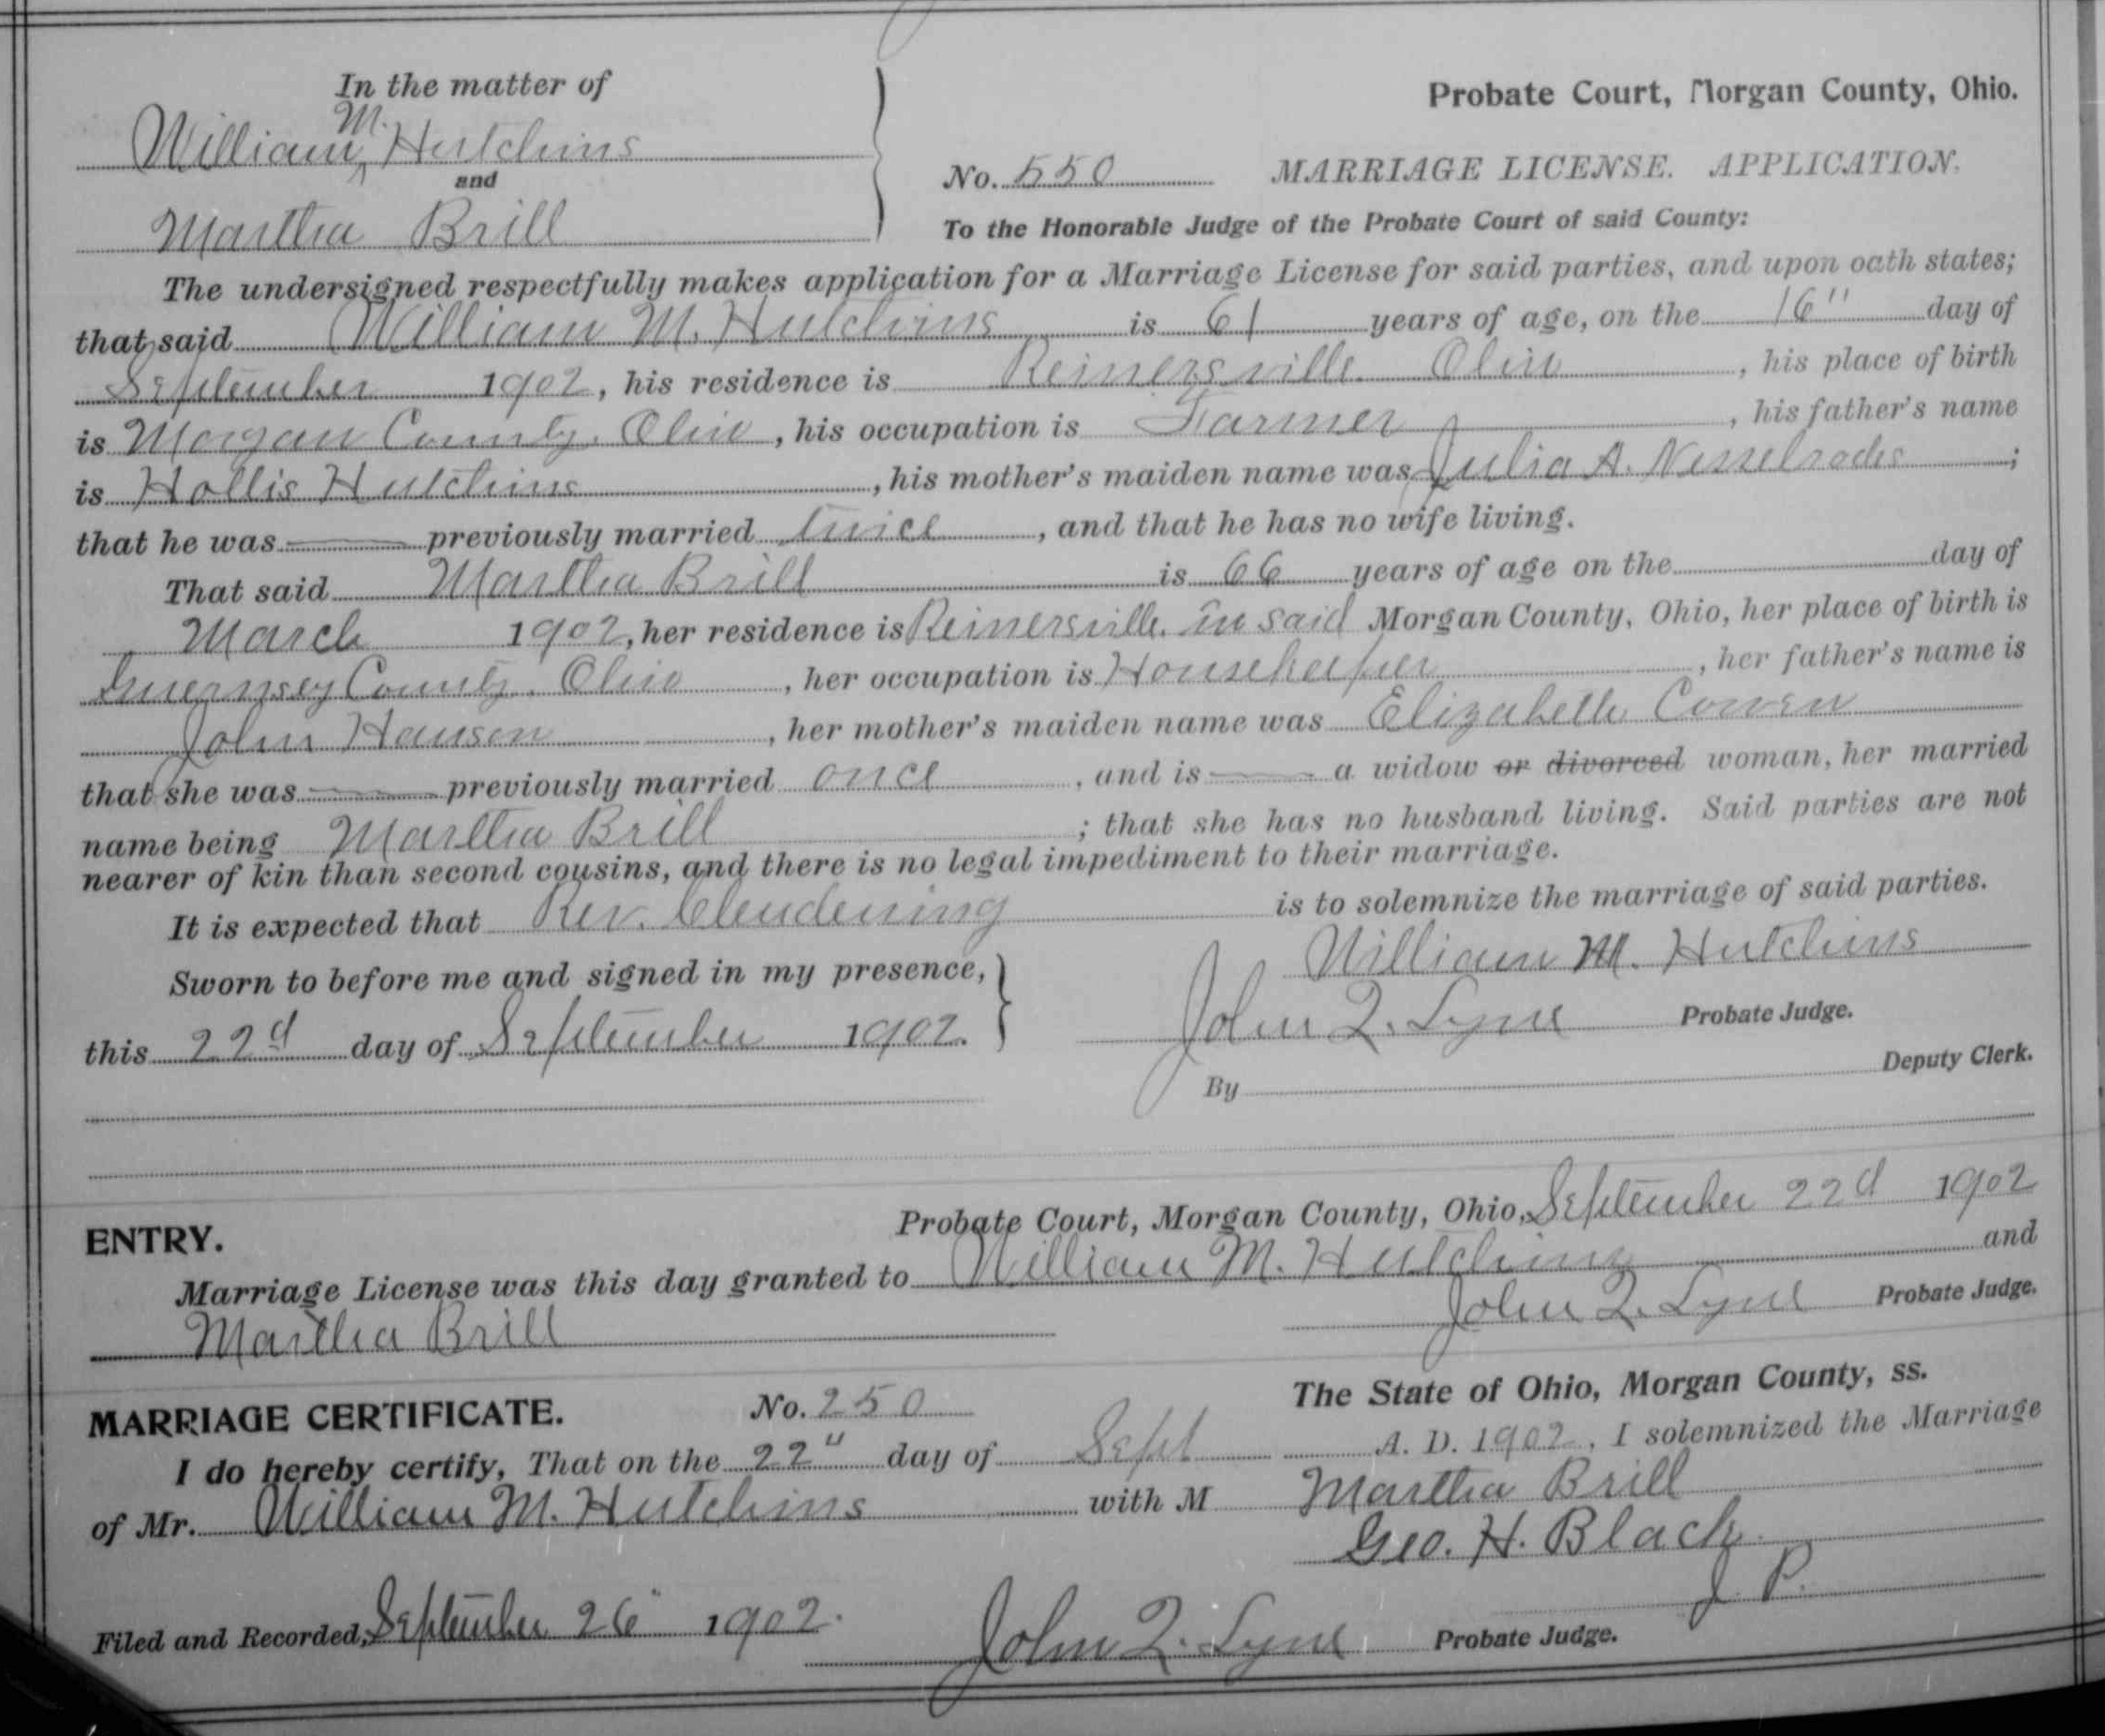 In the matter of
William M. Hutchins
and
Martha Brill
Probate Court, Morgan County, Ohio.
No. 550 MARRIAGE LICENSE. APPLICATION.
To the Honorable Judge of the Probate Court of said County:
The undersigned respectfully makes application for a Marriage License for said parties, and upon oath states;
that said William M. Hutchins is 61 years of age, on the 16" day of
September 1902, his residence is Reinersville. Ohio, his place of birth
is Morgan County, Ohio, his occupation is Farmer, his father's name
is Hollis Hutchins, his mother's maiden name was Julia A. ;
that he was previously married twice, and that he has no wife living.
That said Martha Brill is 66 years of age on the day of
March 1902, her residence is Reinersville, in said Morgan County, Ohio, her place of birth is
Guernsey County, Ohio, her occupation is Housekeeper, her father's name is
John Hansen, her mother's maiden name was Elizabeth Cowen
that she was previously married once, and is a widow or divorced woman, her married
name being Martha Brill; that she has no husband living. Said parties are not
nearer of kin than second cousins, and there is no legal impediment to their marriage.
It is expected that Rev. Clendening is to solemnize the marriage of said parties.
William M. Hutchins
Sworn to before me and signed in my presence,
this 22d day of September 1902.
John Q. Lyne Probate Judge.
By Deputy Clerk.
ENTRY.
Probate Court, Morgan County, Ohio, September 22d 1902
Marriage License was this day granted to William M. Hutchins and
Martha Brill
John Q. Lyne Probate Judge.
MARRIAGE CERTIFICATE. No. 250 The State of Ohio, Morgan County, ss.
I do hereby certify, That on the 22" day of Sept A. D. 1902, I solemnized the Marriage
of Mr. William M. Hutchins with M Martha Brill
Geo. H. Black
J P.
Filed and Recorded, September 26" 1902. John Q. Lyne Probate Judge.